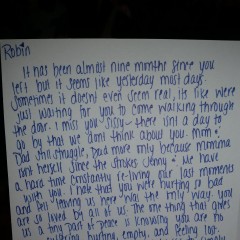 Robin
It has been almost nine months since you
left but it seems like yesterday most days.
Sometimes it doesnt even seem real, its like were
just waiting for you to come walking through
the door. I miss you sissy - there isnt a day to
go by that we dont think about you. mom &
Dad still struggle, Dad more only because momma
isnt herself since the strokes Jenny & me have
a hard time constantly re-living our last moments
with you. I hate that you were hurting so bad
and leaving us here was the only way you
are so loved by all of us. The one thing that gives
us a tiny part of peace is knowing you are no
hurting, empty, and feeling lost.